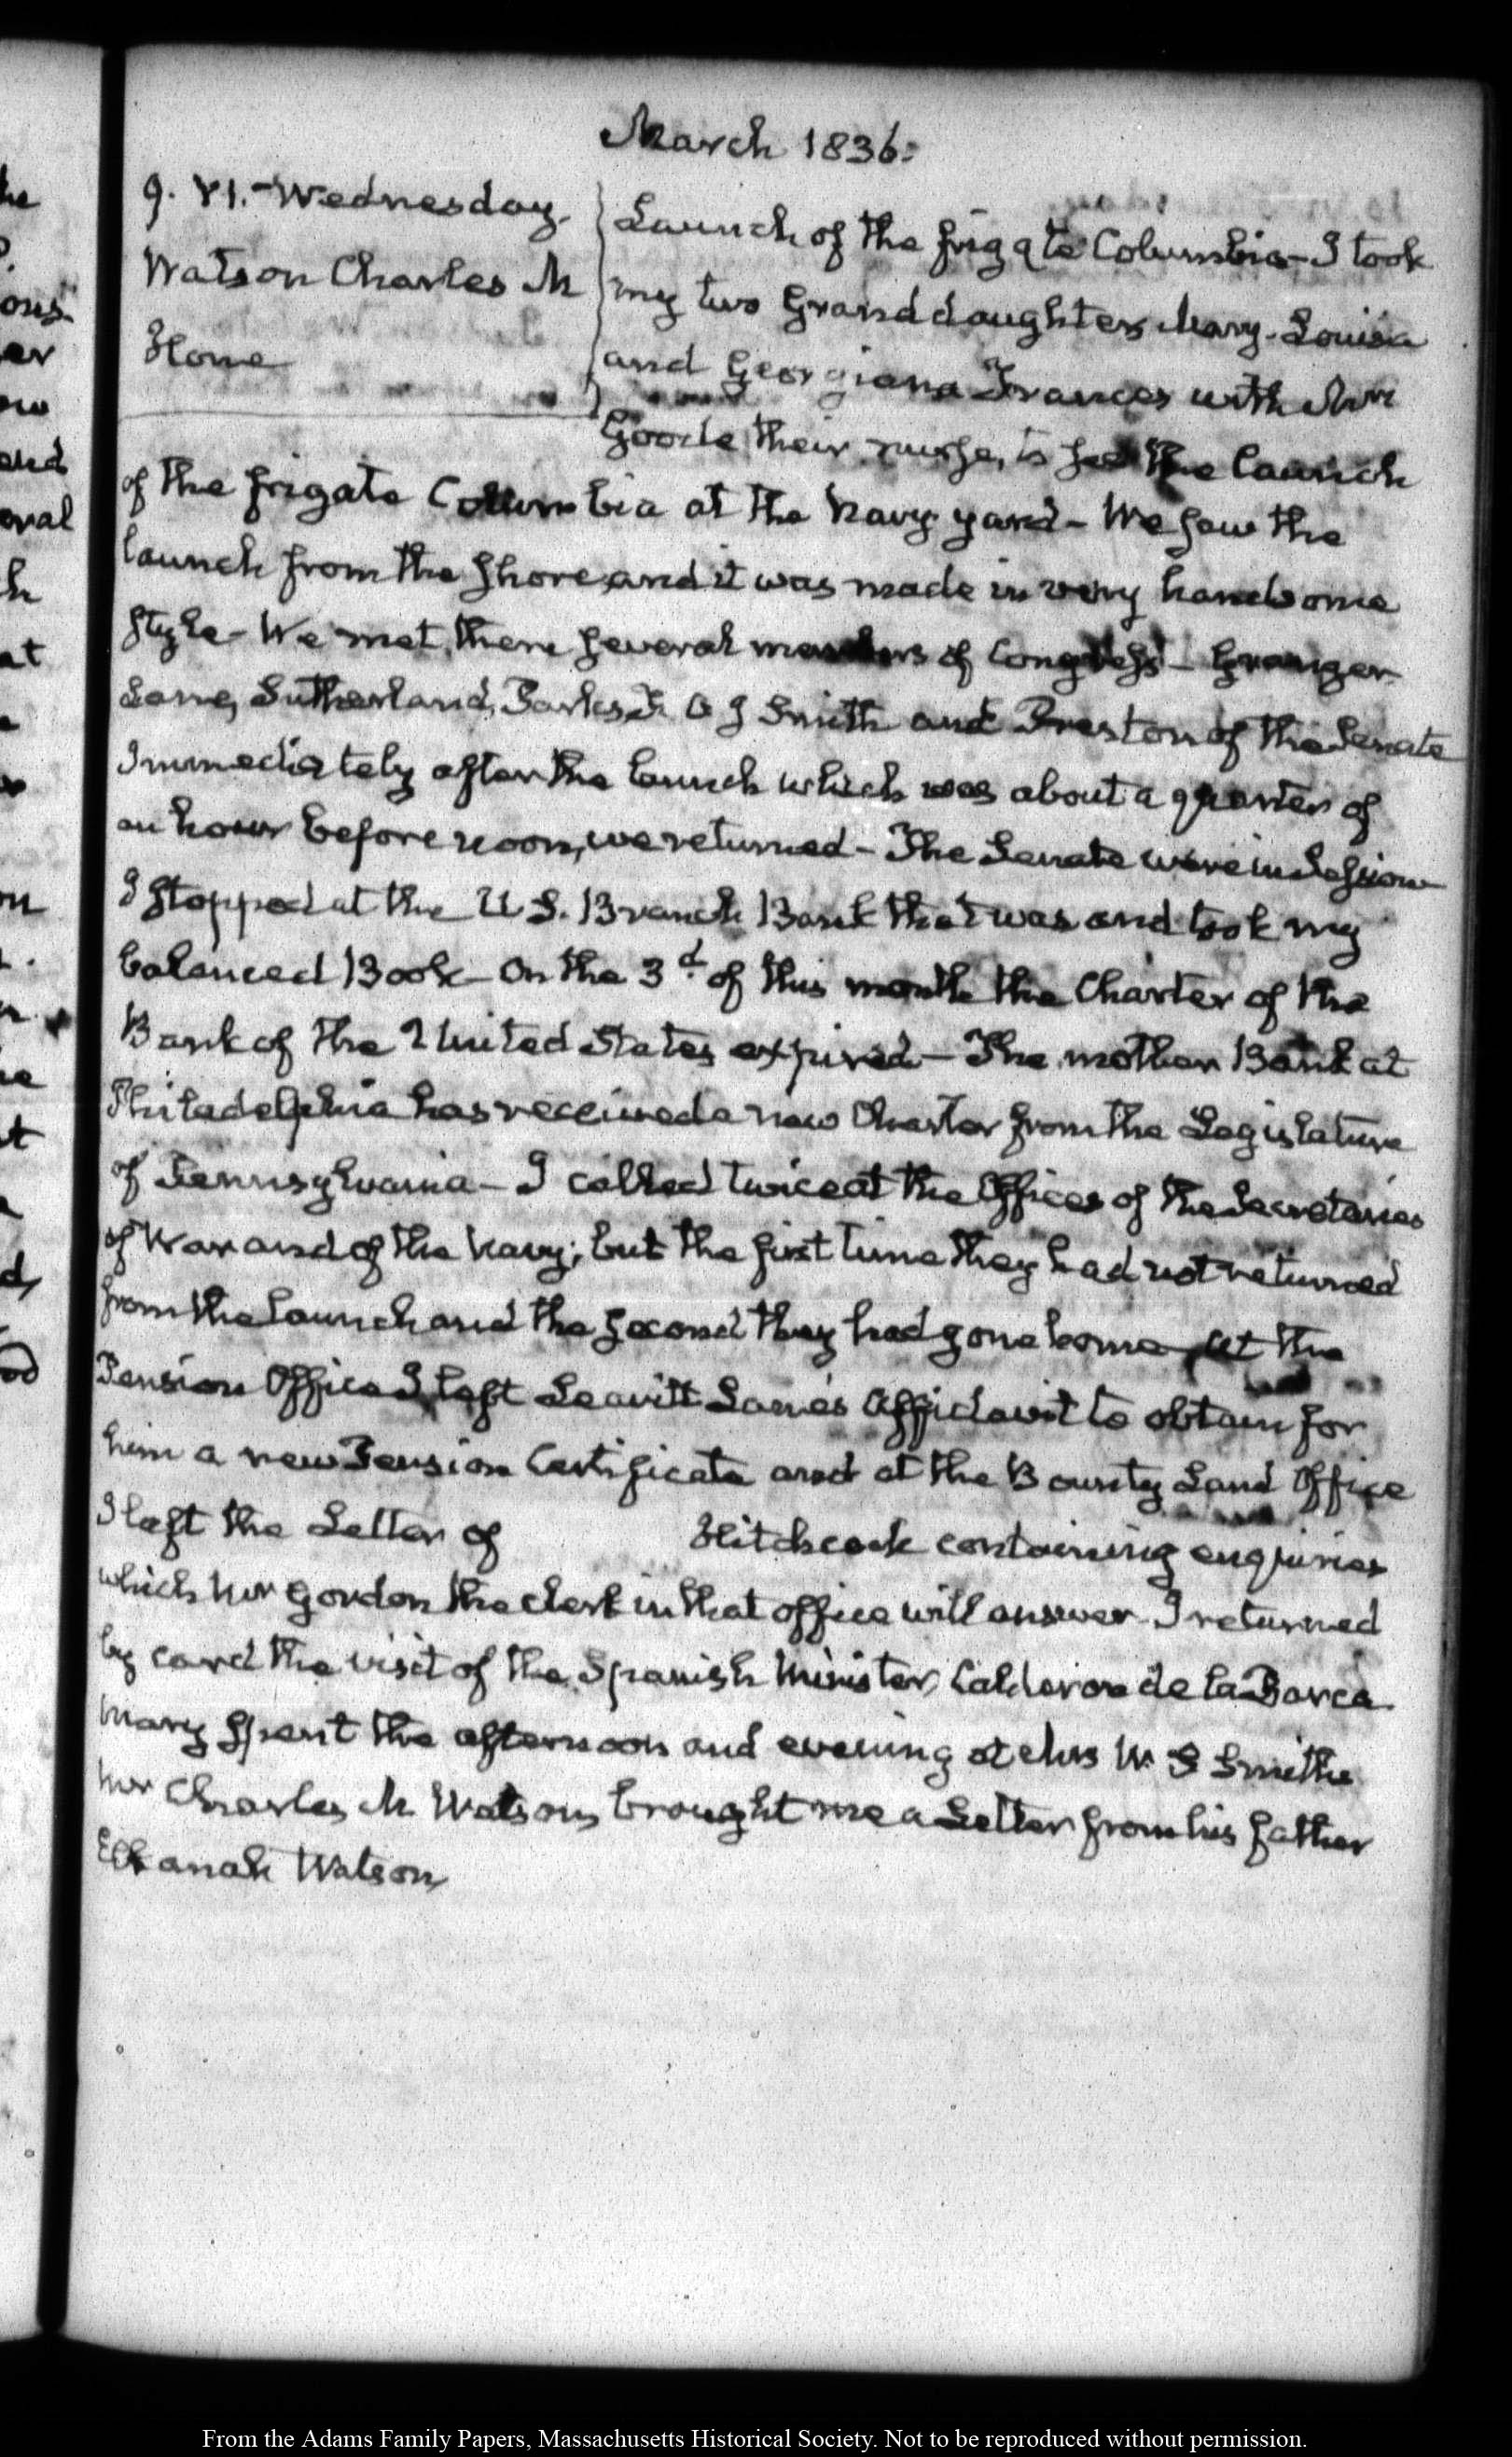 March 1836.
9. VI. Wednesday.
Watson Charles M
Hone
Launch of the frigate Columbia – I took
my two Granddaughters Mary-Louisa
and Georgiana Frances with Mrs
Goods their nurse, to see the launch
of the frigate Columbia at the Navy yard – We saw the
launch from the shore, and it was made in very handsome
style – We met there several members of Congress – Granger
Lane, Sutherland, Parks, F. O J Smith and Preston of the Senate
Immediately after the launch which was about a quarter of
an hour before noon, we returned – The Senate were in Session
I stopped at the U.S. Branch Bank that was and took my
balanced Book – On the 3d. of this month the Charter of the
Bank of the United States expired – The mother Bank at
Philadelphia has received a new Charter from the Legislature
of Pennsylvania – I called twice at the Offices of the Secretaries
of War and of the Navy; but the first time they had not returned
from the launch and the second they had gone home, At the
Pension Office I left Leavitt Lane's Affidavit to obtain for
him a new Pension Certificate and at the Bounty Land Office
I left the Letter of Hitchcock containing enquiries
which Mr Gordon the clerk in that office will answer. I returned
by card the visit of the Spanish Minister, Calderon de la Barca
Mary spent the afternoon and evening at Mrs W. S Smith's
Mr Charles M Watson, brought me a Letter from his father
Elkanah Watson,
he
ous-
er
ow
and
oral
h
at
on
he
t
d,
From the Adams Family Papers, Massachusetts Historical Society. Not to be reproduced without permission.